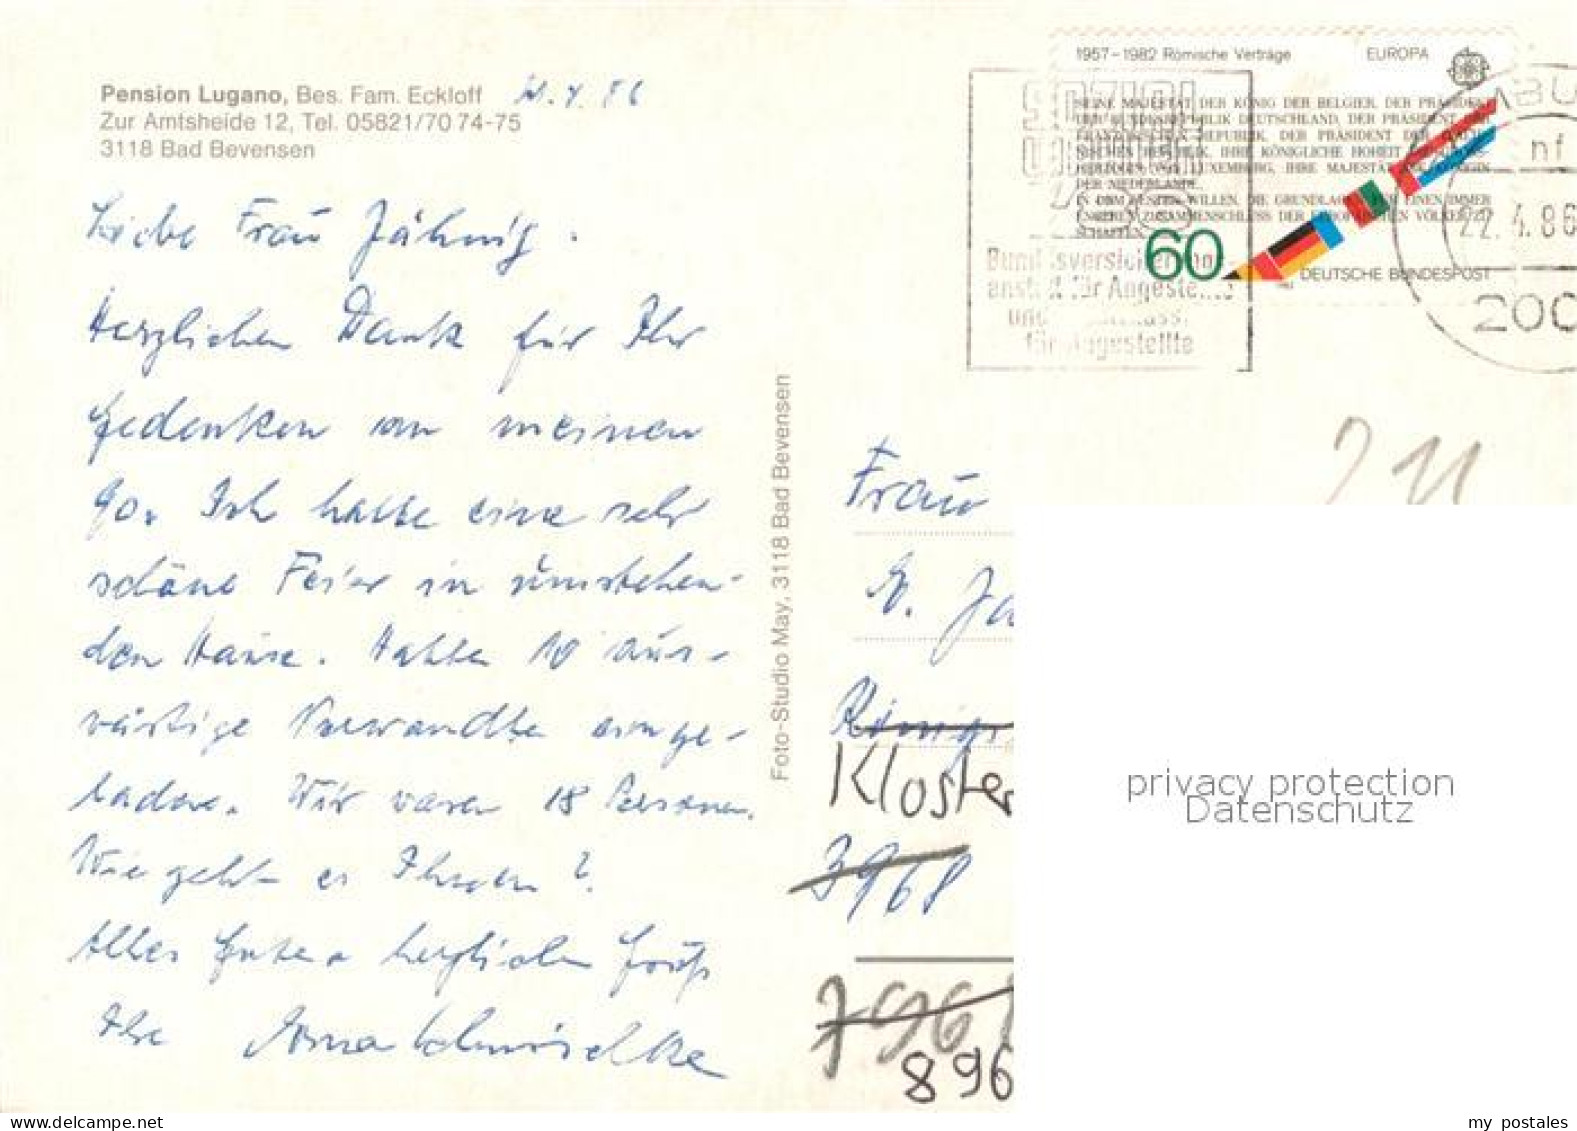 Pension Lugano, Bes. Fam. Eckloff
Zur Amtsheide 12, Tel. 05821/70 74-75
3118 Bad Bevensen
Liebe Frau Jähnig.
Herzlichen Dank für Ihr
Gedenken an meinen
90. Ich hatte eine sehr
schöne Feier in umstehen-
den Hause. Hatte 10 aus-
wärtige Verwandte einge-
laden. Wir waren 18 Personen.
Wie geht es Ihnen?
Alles Gute u. herzlichen Gruß
Ihre
Foto-Studio May, 3118 Bad Bevensen
1957-1982 Römische Verträge EUROPA
SEINE MAJESTÄT DER KÖNIG DER BELGIER, DER PRÄSIDENT
DER BUNDESREPUBLIK DEUTSCHLAND, DER PRÄSIDENT DER
FRANZÖSISCHEN REPUBLIK, DER PRÄSIDENT DER
REPUBLIK, IHRE KÖNIGLICHE HOHEIT
VON LUXEMBURG, IHRE MAJESTÄT
DER NIEDERLANDE,
WILLEN, DIE GRUNDLAGEN FÜR EINEN IMMER
ENGEREN ZUSAMMENSCHLUSS DER EUROPÄISCHEN VÖLKER ZU
SCHAFFEN
60
DEUTSCHE BUNDESPOST
Bundesversicherungs
anstalt für Angestellte
und
für Angestellte
nf
22.4.86
200
211
Frau
E. Jä
König
Kloster
3968
7961
896
privacy protection
Datenschutz
my postales